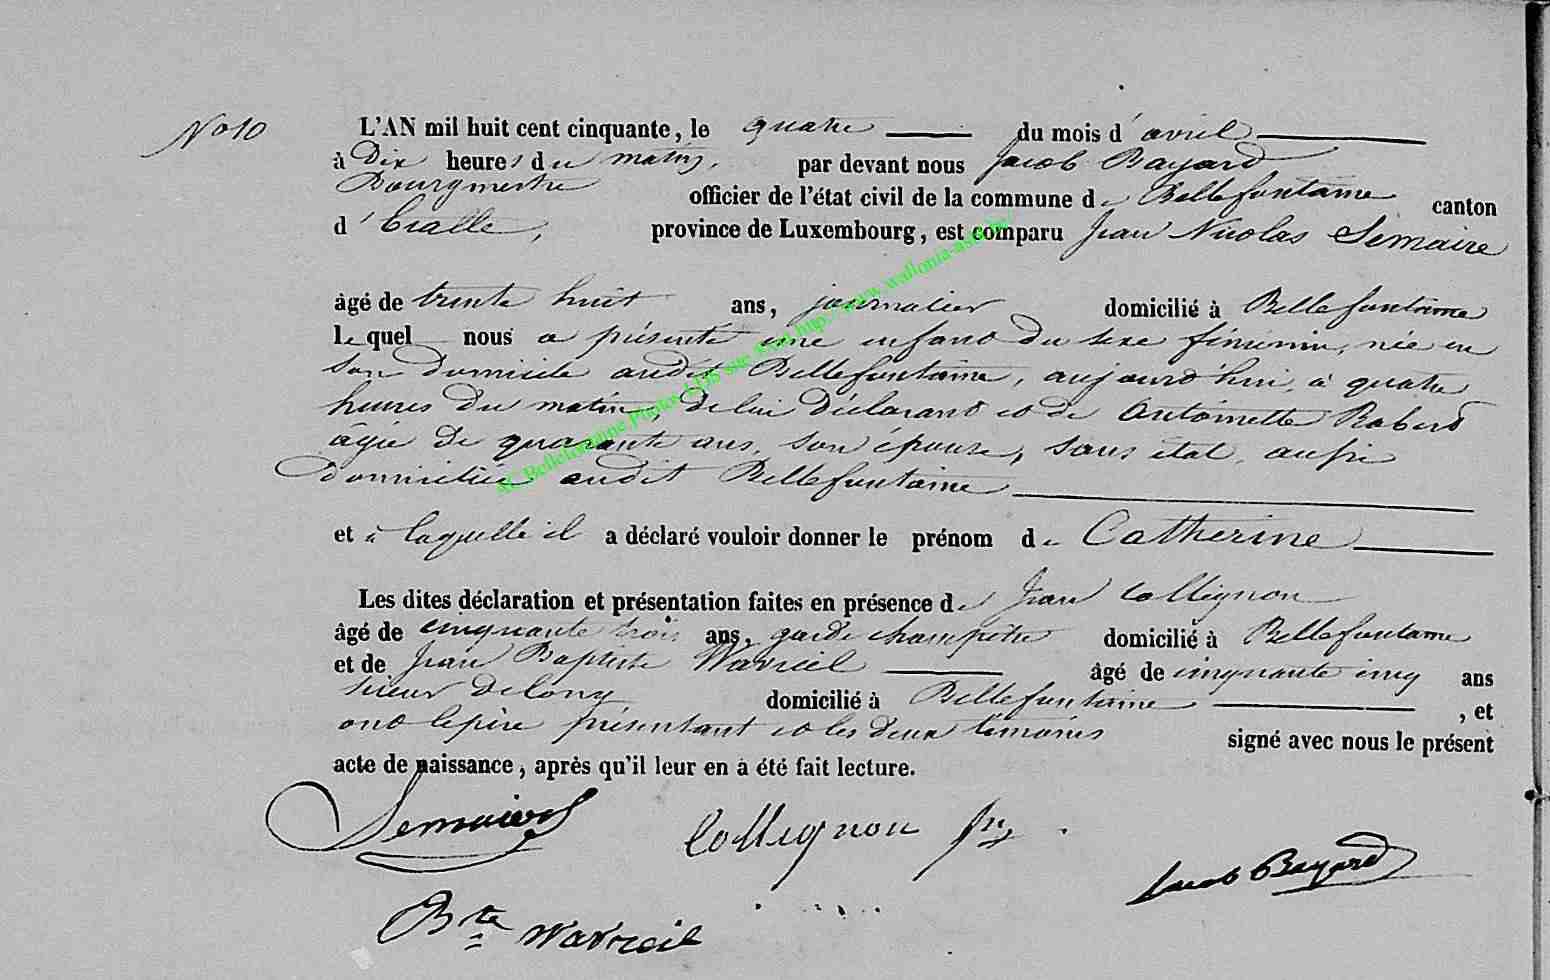 No 10
L'AN mil huit cent cinquante, le quatre du mois d'avril
à Dix heures du matin, par devant nous Jacob Bayard
Bourgmestre officier de l'état civil de la commune de Bellefontaine canton
d'Etalle, province de Luxembourg, est comparu Jean Nicolas Lemaire
âgé de trente huit ans, journalier domicilié à Bellefontaine
lequel nous a présenté une enfant du sexe féminin, née en
son domicile audit Bellefontaine, aujourd'hui, à quatre
heures du matin, de lui déclarant et de Antoinette Robert
âgée de quarante ans, son épouse, sans état, aussi
domiciliée audit Bellefontaine
et à laquelle il a déclaré vouloir donner le prénom de Catherine
Les dites déclaration et présentation faites en présence de Jean Collignon
âgé de cinquante trois ans, garde champêtre domicilié à Bellefontaine
et de Jean Baptiste Wavreil âgé de cinquante cinq ans
scieur de long domicilié à Bellefontaine , et
ont le père présentant et les deux témoins signé avec nous le présent
acte de naissance, après qu'il leur en à été fait lecture.
Lemaire Collignon
Jacob Bayard
Bte Wavreil
AC Bellefontaine Photos LDS sur le site http://www.wallonia-asbl.be/